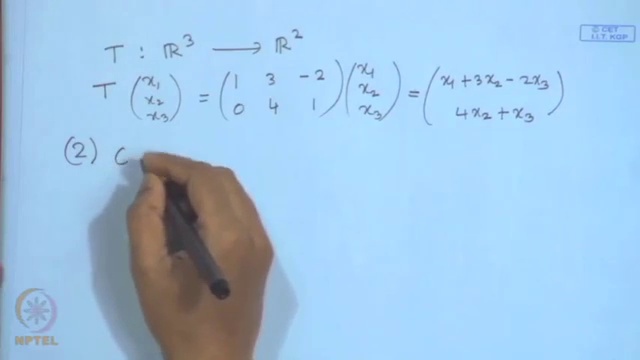 © CET
I.I.T. KGP
T : ℝ³ ⟶ ℝ²
T (x₁ x₂ x₃) = (1 3 -2 / 0 4 1) (x₁ x₂ x₃) = (x₁+3x₂-2x₃ / 4x₂+x₃)
(2) C
NPTEL